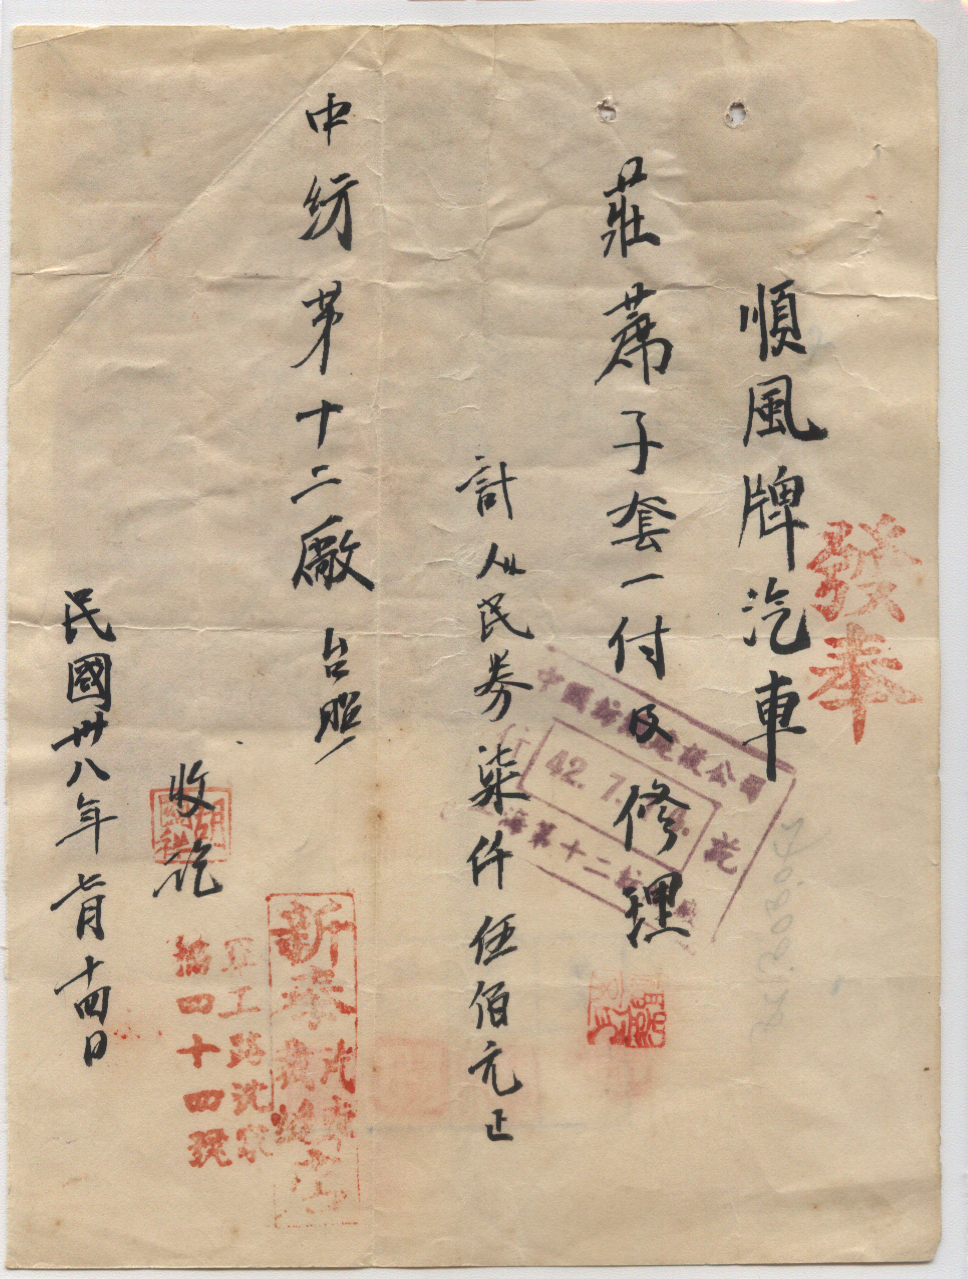 發奉
順風牌汽車
莊蓆子套一付及修理
計人民券柒仟伍佰元正
中紡第十二廠 台照
收訖
民國卅八年七月十四日
中國紡織建設公司
付 42.7.14. 訖
上海第十二紡
新泰汽車
軍工路沈家
四十四號